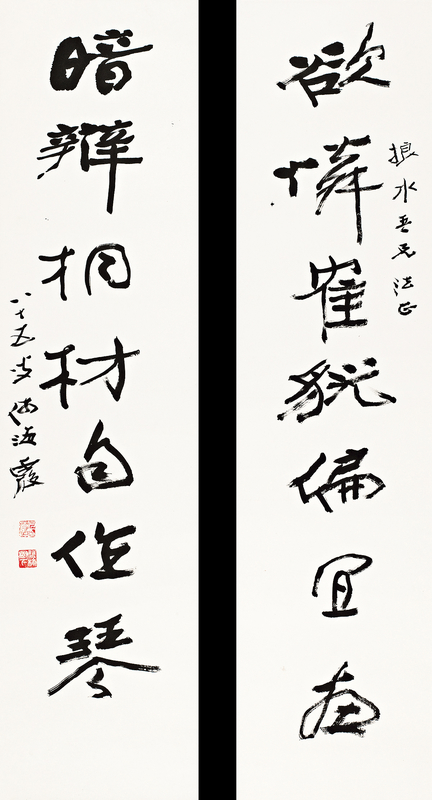 欲憐隺貌偏宜画
水吾兄法正
暗辨桐材自作琴
八十五岁海霞